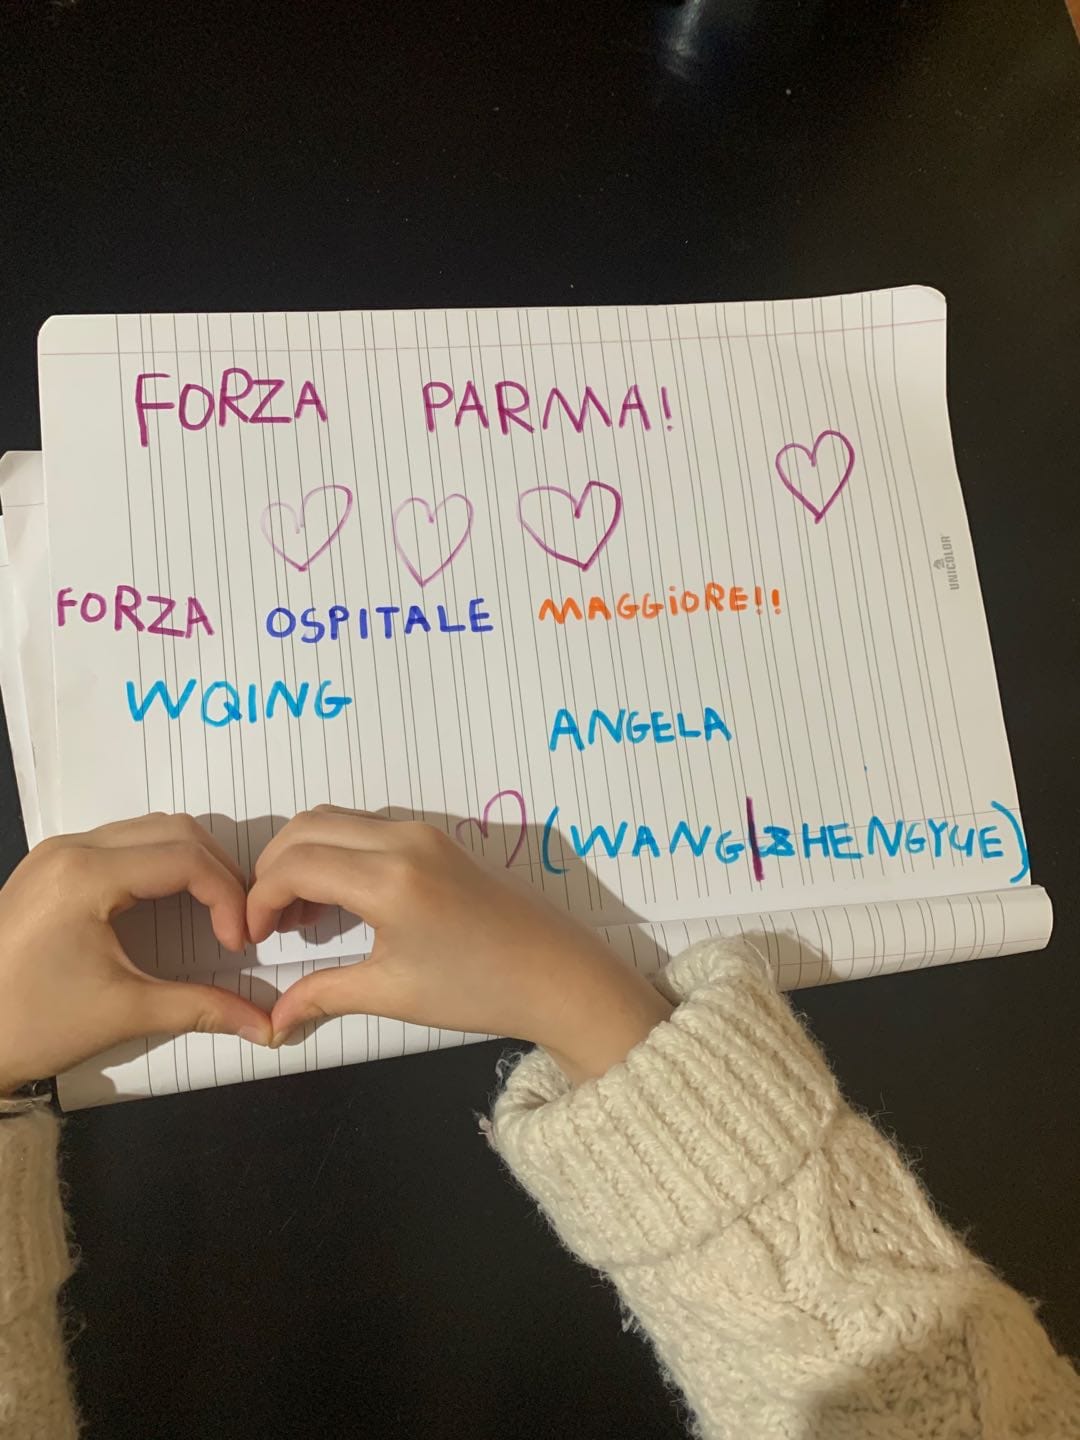 FORZA PARMA!
UNICOLOR
FORZA OSPITALE MAGGiORE!!
WQING
ANGELA
(WANG|ZHENGYUE)